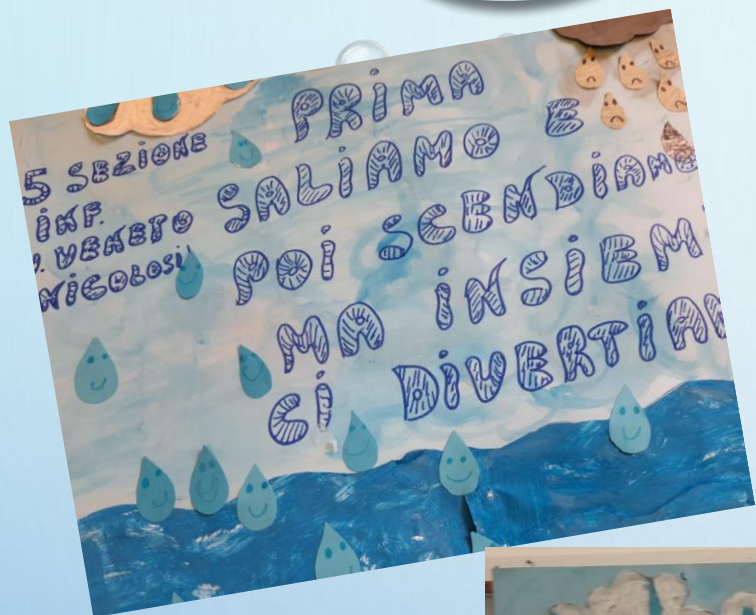 5 SEZIONE
INF.
V. VENETO
NICOLOSI
PRIMA
SALIAMO E
POI SCENDIAMO
MA INSIEM
CI DIVERTIAM